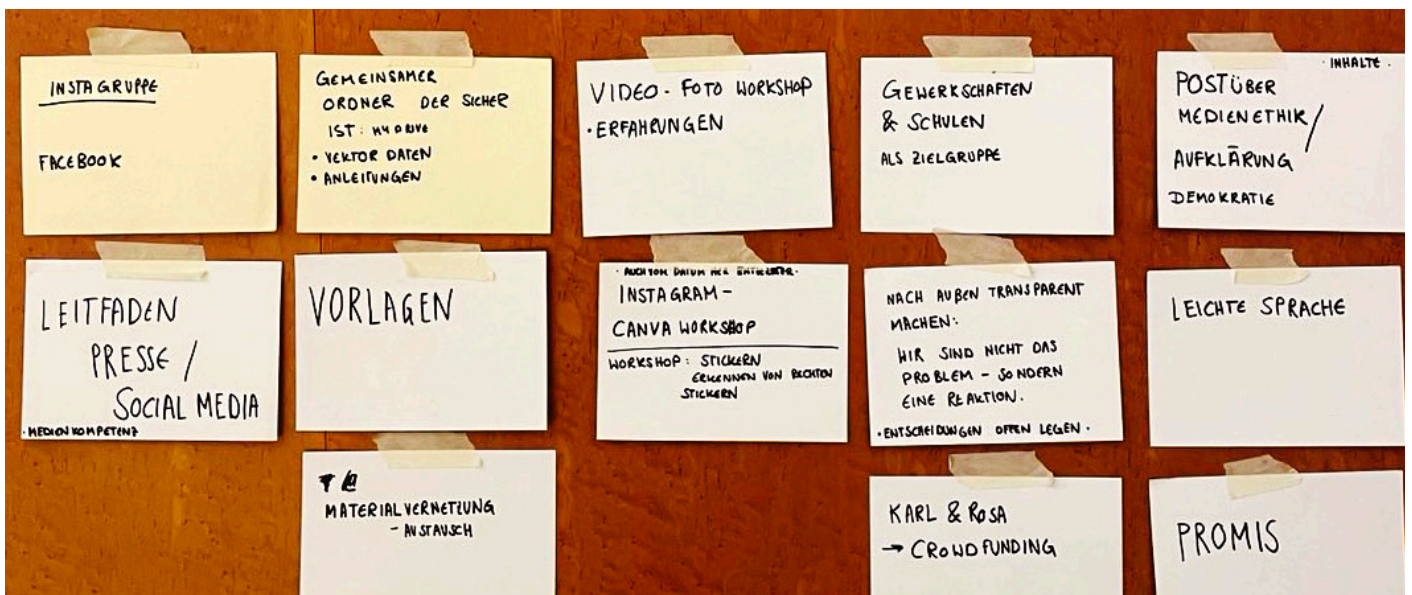 INSTAGRUPPE
FACEBOOK
GEMEINSAMER
ORDNER DER SICHER
IST:
• VEKTOR DATEN
• ANLEITUNGEN
VIDEO - FOTO WORKSHOP
• ERFAHRUNGEN
GEWERKSCHAFTEN
& SCHULEN
ALS ZIELGRUPPE
· INHALTE ·
POST ÜBER
MEDIENETHIK /
AUFKLÄRUNG
DEMOKRATIE
LEITFADEN
PRESSE /
SOCIAL MEDIA
· MEDIENKOMPETENZ
VORLAGEN
· AUCH VOM DATUM HER
INSTAGRAM -
CANVA WORKSHOP
WORKSHOP: STICKERN
ERKENNEN VON RECHTEN
STICKERN
NACH AUßEN TRANSPARENT
MACHEN:
WIR SIND NICHT DAS
PROBLEM - SONDERN
EINE REAKTION.
· ENTSCHEIDUNGEN OFFEN LEGEN ·
LEICHTE SPRACHE
MATERIALVERNETZUNG
- AUSTAUSCH
KARL & ROSA
→ CROWDFUNDING
PROMIS